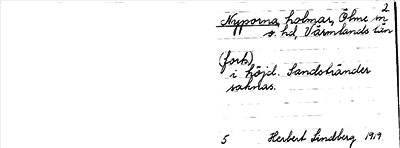 2
Nyporna, holmar, Ölme sn
o. hd, Värmlands län
(forts)
i höjd. Sandstränder
saknas.
5 Herbert Lindberg 1919